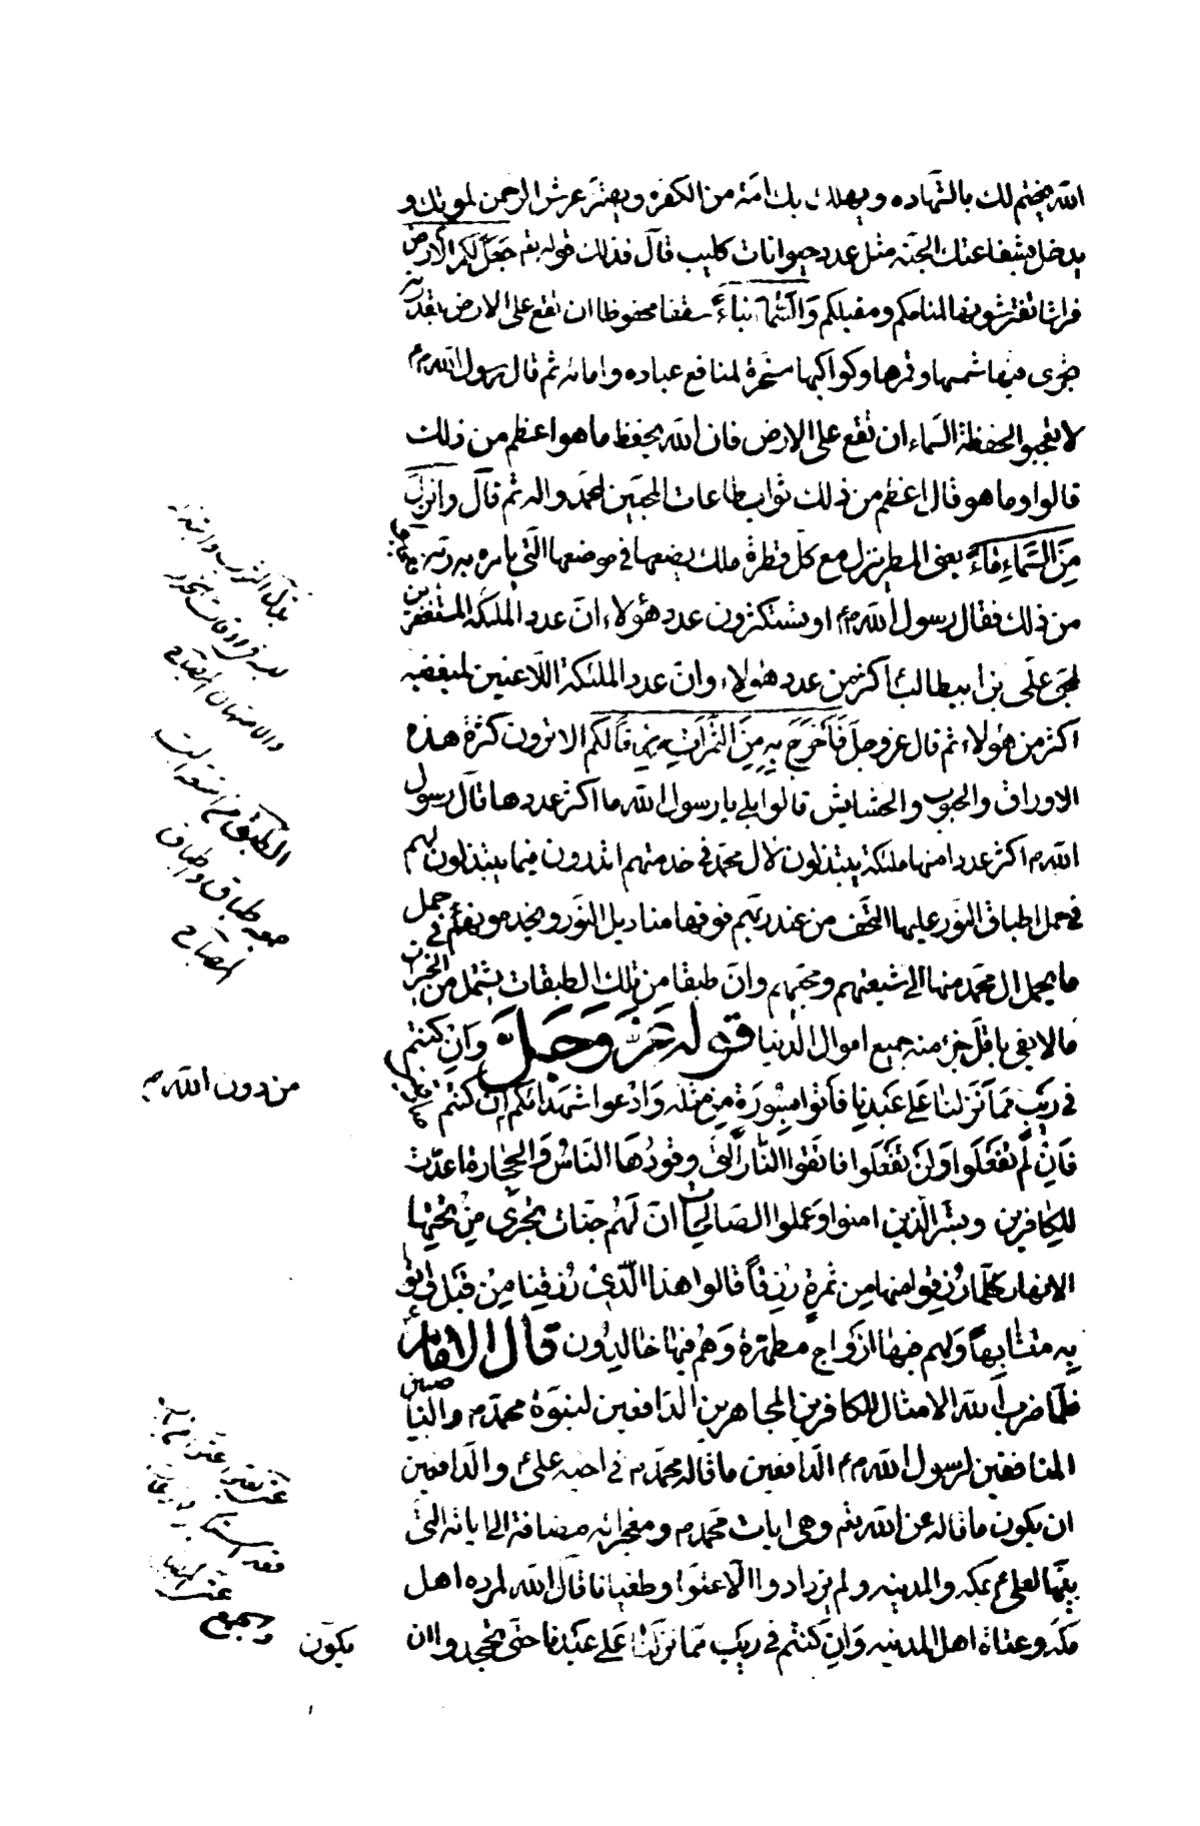 الله يختم لك بالشهادة ويهلك بك امة من الكفرة ويهتز عرش الرحمن لموتك و
يدخل بشفاعتك الجنة مثل عدد حيوانات كليب قال فذلك قوله تعم جعل لكم الأرض
فراشا تفترشونها لمنامكم ومقيلكم والسماء بناء سقفا محفوظا ان تقع على الارض بقدرته
تجرى فيها شمسها وقمرها وكواكبها مسخرة لمنافع عباده وامائه ثم قال رسول الله ص
لا تعجبوا لحفظه السماء ان تقع على الارض فان الله يحفظ ما هو اعظم من ذلك
قالوا وما هو قال اعظم من ذلك ثواب طاعات المحبين لمحمد واله ثم قال وانزل
من السماء ماء يعنى المطر ينزل مع كل قطرة ملك يضعها فى موضعها التى يامره به ربه
من ذلك فقال رسول الله ص او تستكثرون عدد هؤلاء ان عدد الملئكة المستغفرين
لمحبى على بن ابيطالب اكثر من عدد هؤلاء وان عدد الملئكة اللاعنين لمبغضيه
اكثر من هؤلاء ثم قال عز وجل فاخرج به من الثمرات رزقا لكم الا ترون كثرة هذه
الاوراق والحبوب والحشايش قالوا بلى يا رسول الله ما اكثر عددها قال رسول
الله ص اكثر عددا منها ملئكة يبتذلون لال محمد فى خدمتهم اتدرون فيما يبتذلون لهم
فى حمل اطباق النور عليها التحف من عند ربهم فوقها مناديل النور ويخدمونهم فى حمل
ما يحمل ال محمد منها الى شيعتهم ومحبيهم وان طبقا من تلك الطبقات يشتمل من الخيرات
ما لا يفى باقل جزء منه جميع اموال الدنيا قوله عز وجل وان كنتم
فى ريب مما نزلنا على عبدنا فأتوا بسورة من مثله وادعوا شهدائكم ان كنتم صادقين
من دون الله
فان لم تفعلوا ولن تفعلوا فاتقوا النار التى وقودها الناس والحجارة اعدت
للكافرين وبشر الذين امنوا وعملوا الصالحات ان لهم جنات تجرى من تحتها
الانهار كلما رزقوا منها من ثمرة رزقا قالوا هذا الذى رزقنا من قبل واتوا
به متشابها ولهم فيها ازواج مطهرة وهم فيها خالدون قال الامام
فلما ضرب الله الامثال للكافرين المجاهرين الدافعين لنبوة محمد ص والناصبين
المنافقين لرسول الله ص الدافعين ما قاله محمد ص فى اخيه على ع والدافعين
ان يكون ما قاله عن الله تعم وهى ايات محمد ص ومعجزاته مضافة الى اياته التى
بينها لعلى ع بمكة والمدينة ولم يزدادوا الا عتوا وطغيانا قال الله لمردة اهل
مكة وعتاة اهل المدينة وان كنتم فى ريب مما نزلنا على عبدنا حتى تجحدوا ان
يكون